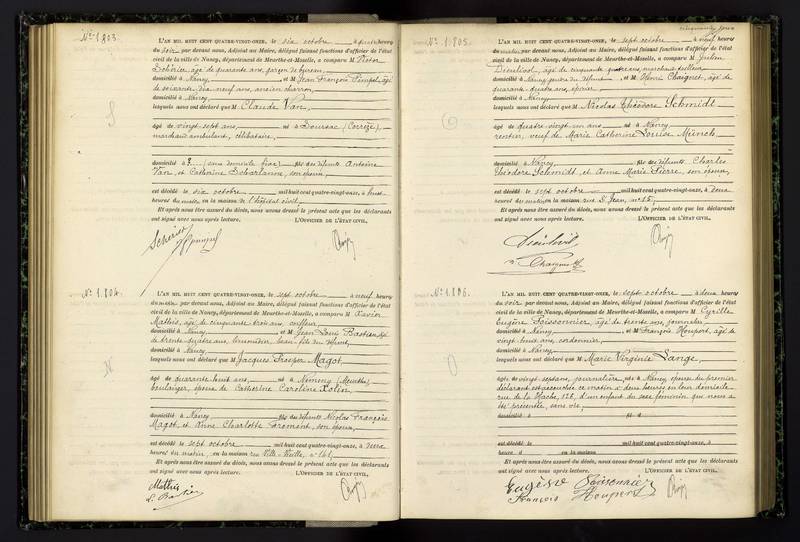 N° 1.803
L'AN MIL HUIT CENT QUATRE-VINGT-ONZE, le six octobre à quatre heures
du soir par devant nous, Adjoint au Maire, délégué faisant fonctions d'officier de l'état
civil de la ville de Nancy, département de Meurthe-et-Moselle, a comparu M
âgé de quarante ans, garçon de bureau,
domicilié à Nancy et M Jean François âgé
de soixante dix neuf ans, ancien charron,
domicilié à Nancy
lesquels nous ont déclaré que M Claude Van,
âgé de vingt-sept ans, né à (Corrèze),
marchand ambulant, célibataire,
domicilié à (sans domicile fixe) fils des défunts Antoine
Van, et Catherine son épouse,
est décédé le six octobre mil huit cent quatre-vingt-onze, à
heures du matin, en la maison de l'hôpital civil,
Et après nous être assuré du décès, nous avons dressé le présent acte que les déclarants
ont signé avec nous après lecture. L'OFFICIER DE L'ÉTAT CIVIL,
N° 1.804
L'AN MIL HUIT CENT QUATRE-VINGT-ONZE, le sept octobre à neuf heures
du matin, par devant nous, Adjoint au Maire, délégué faisant fonctions d'officier de l'état
civil de la ville de Nancy, département de Meurthe-et-Moselle, a comparu M Xavier
Mathis, âgé de cinquante trois ans, coiffeur,
domicilié à Nancy et M Jean Louis Bastien, âgé
de trente quatre ans, beau-fils du défunt,
domicilié à Nancy
lesquels nous ont déclaré que M Jacques Prosper Magot,
âgé de quarante huit ans, né à Nomeny (Meurthe),
boulanger, époux de Catherine Caroline
domicilié à Nancy fils des défunts Nicolas François
Magot, et Anne Charlotte Fromont, son épouse,
est décédé le sept octobre mil huit cent quatre-vingt-onze, à deux
heures du matin, en la maison rue Ville-Vieille, n°
Et après nous être assuré du décès, nous avons dressé le présent acte que les déclarants
ont signé avec nous après lecture. L'OFFICIER DE L'ÉTAT CIVIL,
Mathis
L. Bastien
N° 1.805
L'AN MIL HUIT CENT QUATRE-VINGT-ONZE, le sept octobre à neuf heures
du matin, par devant nous, Adjoint au Maire, délégué faisant fonctions d'officier de l'état
civil de la ville de Nancy, département de Meurthe-et-Moselle, a comparu M Julien
âgé de cinquante quatre ans, marchand tailleur
domicilié à Nancy, gendre du défunt et M Henri Chaignet, âgé de
quarante quatre ans, épicier
domicilié à Nancy
lesquels nous ont déclaré que M Nicolas Théodore Schmidt
âgé de quatre-vingt-un ans né à Nancy
rentier, veuf de Marie Catherine Louise Münch
domicilié à Nancy, fils des défunts Charles
Théodore Schmidt, et Anne Marie Pierre, son épouse,
est décédé le sept octobre mil huit cent quatre-vingt-onze, à deux
heures du matin, en la maison rue St Jean, n°
Et après nous être assuré du décès, nous avons dressé le présent acte que les déclarants
ont signé avec nous après lecture. L'OFFICIER DE L'ÉTAT CIVIL,
N° 1.806.
L'AN MIL HUIT CENT QUATRE-VINGT-ONZE, le sept octobre à deux heures
du soir, par devant nous, Adjoint au Maire, délégué faisant fonctions d'officier de l'état
civil de la ville de Nancy, département de Meurthe-et-Moselle, a comparu M Cyrille
Eugène Poissonnier, âgé de trente ans, journalier,
domicilié à Nancy et M François Houpert, âgé de
vingt huit ans, cordonnier,
domicilié à Nancy
lesquels nous ont déclaré que M Marie Virginie Lange,
âgée de vingt sept ans, journalière, née à Nancy, épouse du premier
déclarant est accouchée ce matin à deux heures en leur domicile
rue de la Hache, 126, d'un enfant du sexe féminin qui nous a
été présentée, sans vie,
domicilié à fil d
est décédé le mil huit cent quatre-vingt-onze, à
heure d en la maison
Et après nous être assuré du décès, nous avons dressé le présent acte que les déclarants
ont signé avec nous après lecture. L'OFFICIER DE L'ÉTAT CIVIL,
Eugène Poissonnier
François Houpert